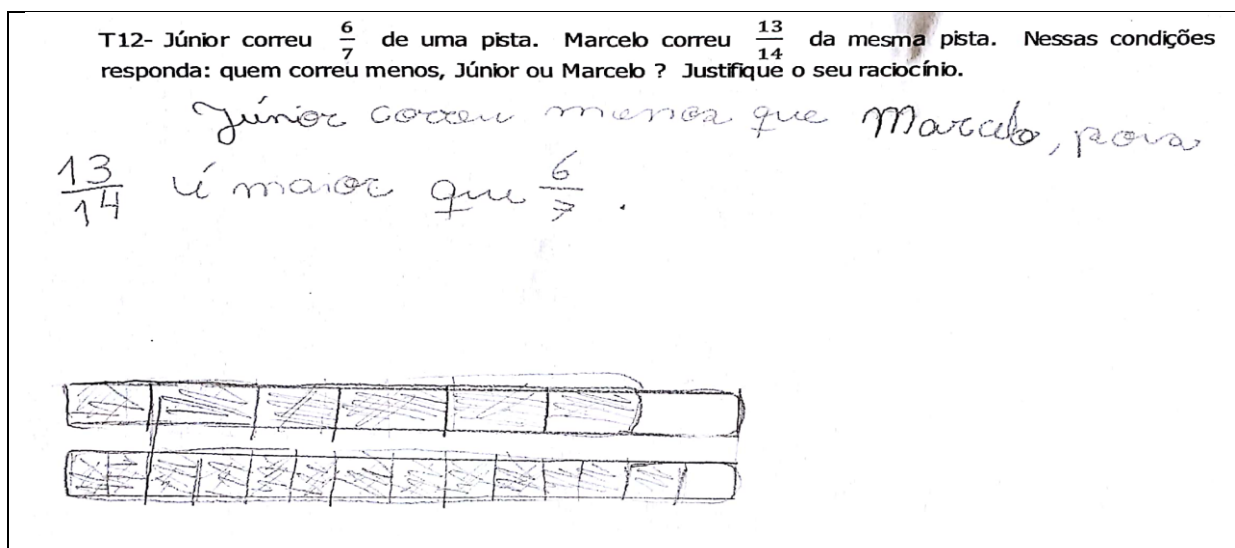 T12- Júnior correu 6/7 de uma pista. Marcelo correu 13/14 da mesma pista. Nessas condições
responda: quem correu menos, Júnior ou Marcelo ? Justifique o seu raciocínio.
Júnior correu menos que Marcelo, pois
13/14 é maior que 6/7 .